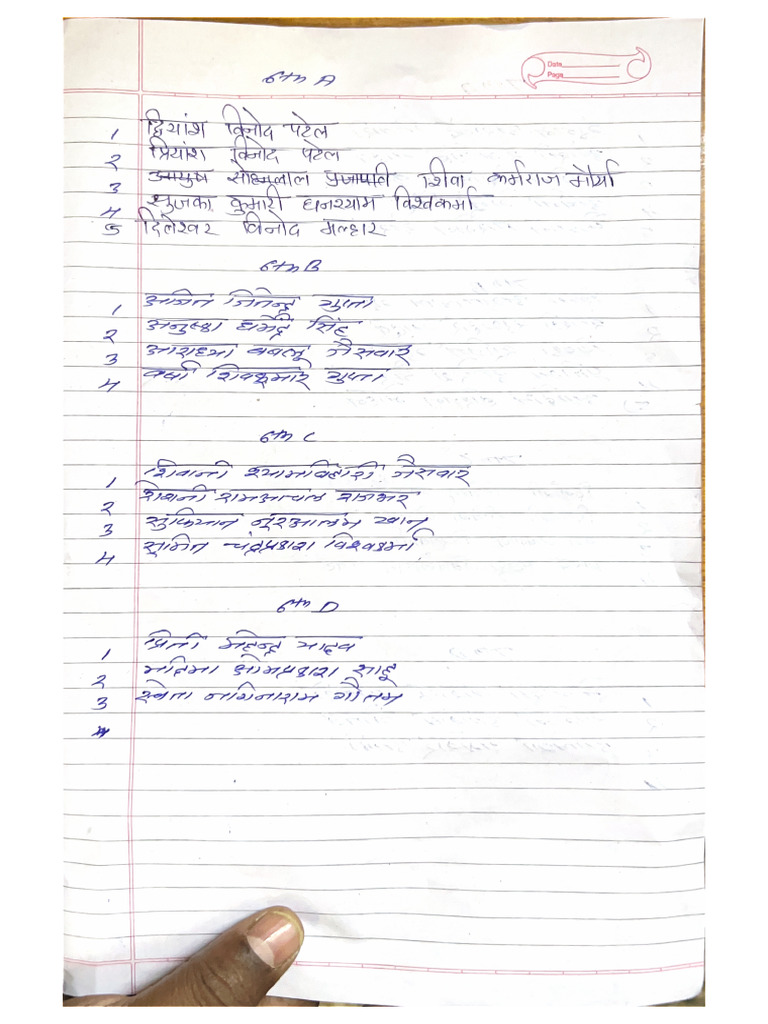 Date
Page
6th A
1 दियांश विनोद पटेल
2 प्रियांश विनोद पटेल
3 आयुष सोहनलाल प्रजापति शिवा कर्मराज मौर्या
4 कुमारी घनश्याम विश्वकर्मा
5 दिलेश्वर विनोद मल्हार
6th B
1 अजित जितेन्द्र गुप्ता
2 अनुष्का धर्मेंद्र सिंह
3 आराध्या बबलू जैसवार
4 वर्षा शिवकुमार गुप्ता
6th C
1 शिवानी श्यामबिहारी जैसवार
2 रामआचल राजभर
3 सुफियान नुरआलम खान
4 सुमित चंद्रप्रकाश विश्वकर्मा
6th D
1 प्रिती महेन्द्र यादव
2 महिमा ओमप्रकाश साहू
3 श्वेता नगिनाराम गौतम